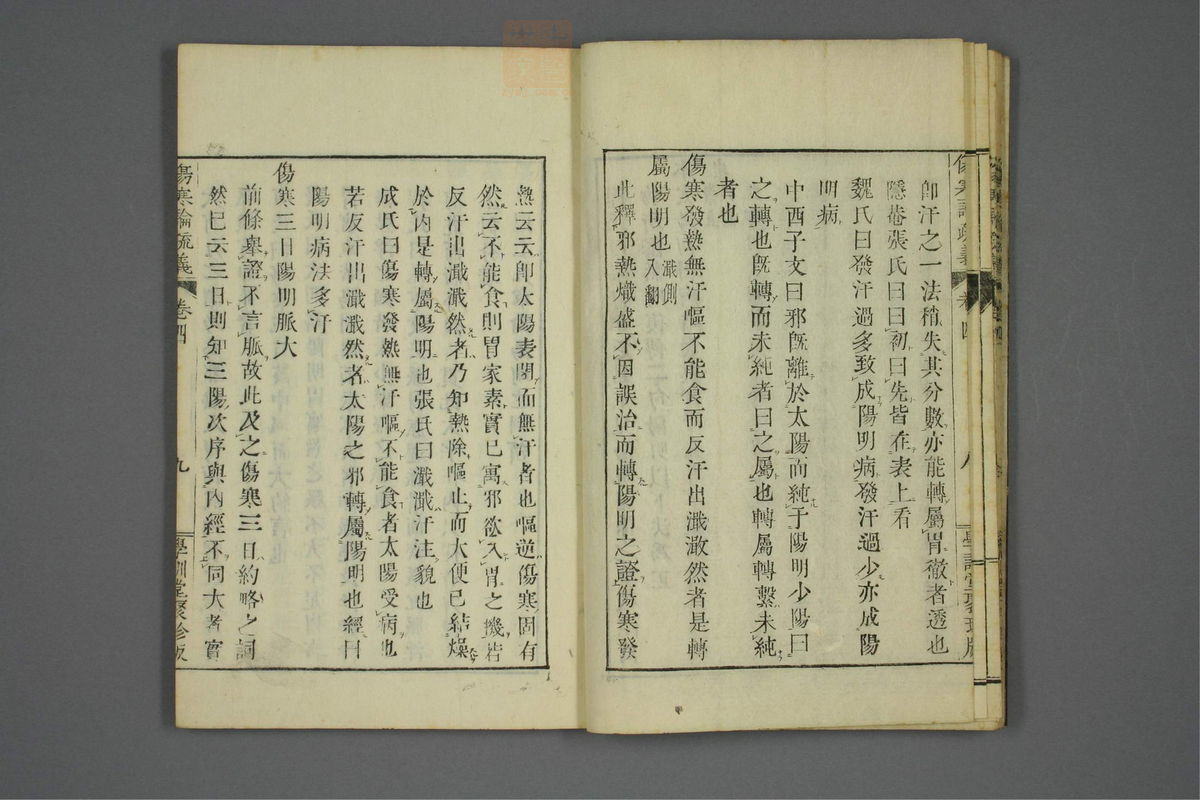 傷寒論疏義 卷四 八 學訓堂聚珍版
卽汗之一法稍失其分數亦能轉屬胃徹者透也
隱菴張氏曰曰初曰先皆在表上看
魏氏曰發汗過多致成陽明病發汗過少亦成陽
明病
中西子文曰邪旣離於太陽而純于陽明少陽曰
之轉也旣轉而未純者曰之屬也轉屬轉繫未純
者也
傷寒發熱無汗嘔不能食而反汗出濈濈然者是轉
屬陽明也濈側入翻
此釋邪熱熾盛不因誤治而轉陽明之證傷寒發
熱云云卽太陽表閉而無汗者也嘔逆傷寒固有
然云不能食則胃家素實已寓邪欲入胃之機若
反汗出濈濈然者乃知熱除嘔止而大便已結燥
於內是轉屬陽明也張氏曰濈濈汗注貌也
成氏曰傷寒發熱無汗嘔不能食者太陽受病也
若反汗出濈濈然者太陽之邪轉屬陽明也經曰
陽明病法多汗
傷寒三日陽明脈大
前條舉證不言脈故此及之傷寒三日約略之詞
然巳云三日則知三陽次序與內經不同大者實
傷寒論疏義 卷四 九 學訓堂聚珍版